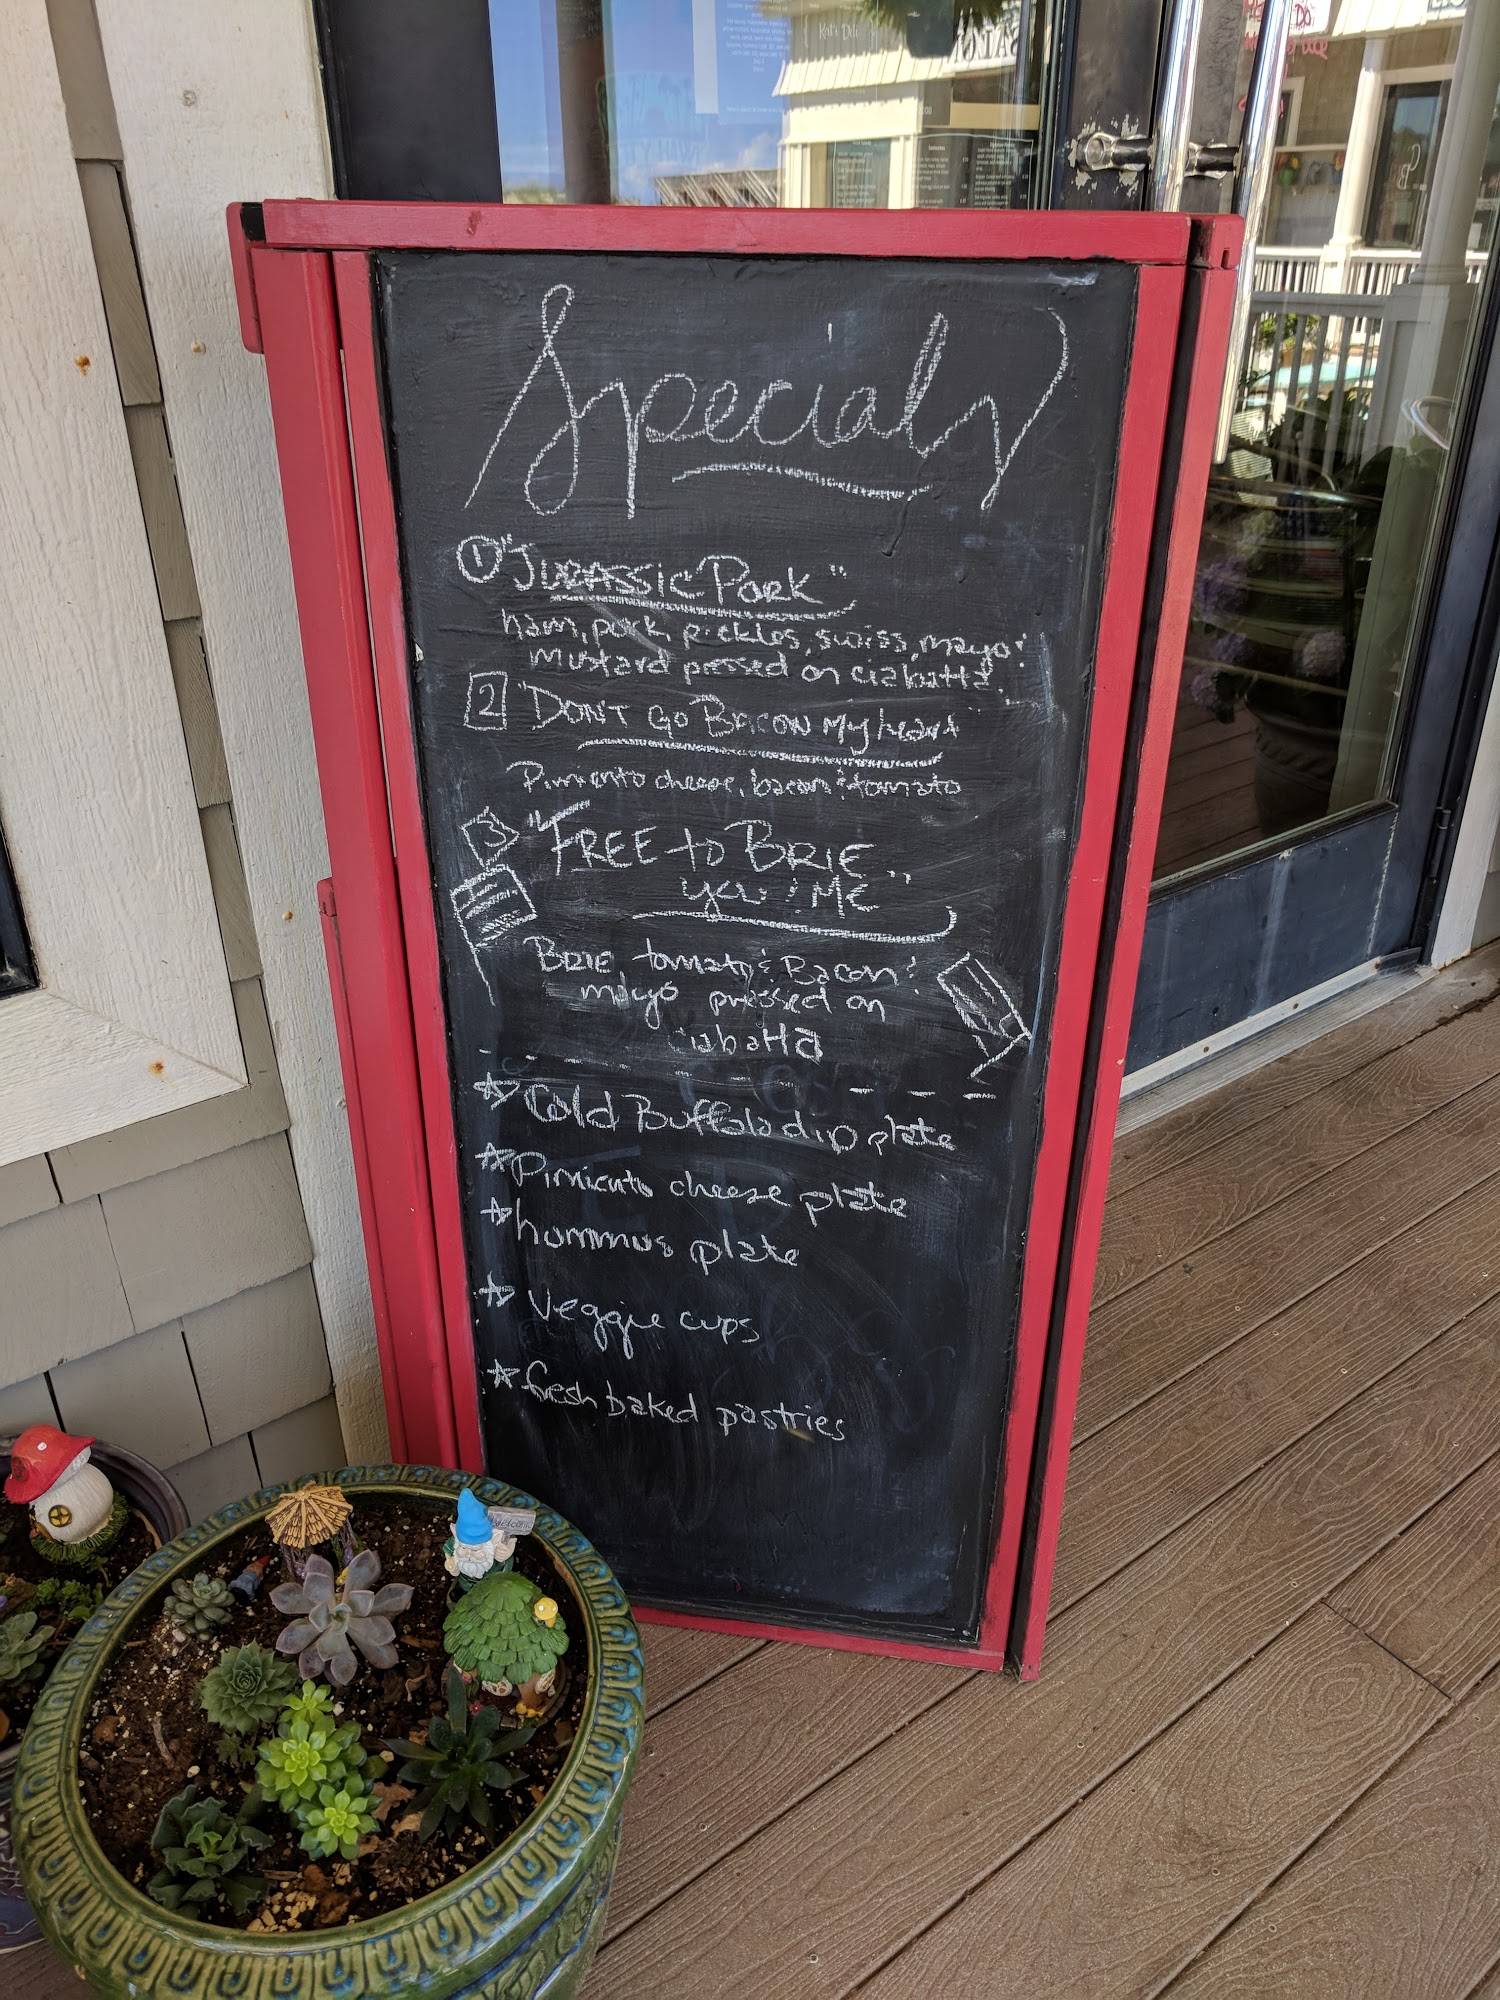 Kat's Deli
Specials
1 "Jurassic Pork"
ham, pork, pickles, swiss, mayo &
mustard pressed on ciabatta.
2 "DON'T GO BACON My heart"
Pimiento cheese, bacon & tomato
3 "FREE to BRIE
you & ME"
BRIE, tomato & Bacon &
mayo pressed on
ciabatta
☆ Cold Buffalo dip plate
☆ Pimiento cheese plate
☆ hummus plate
☆ Veggie cups
☆ fresh baked pastries
Welcome